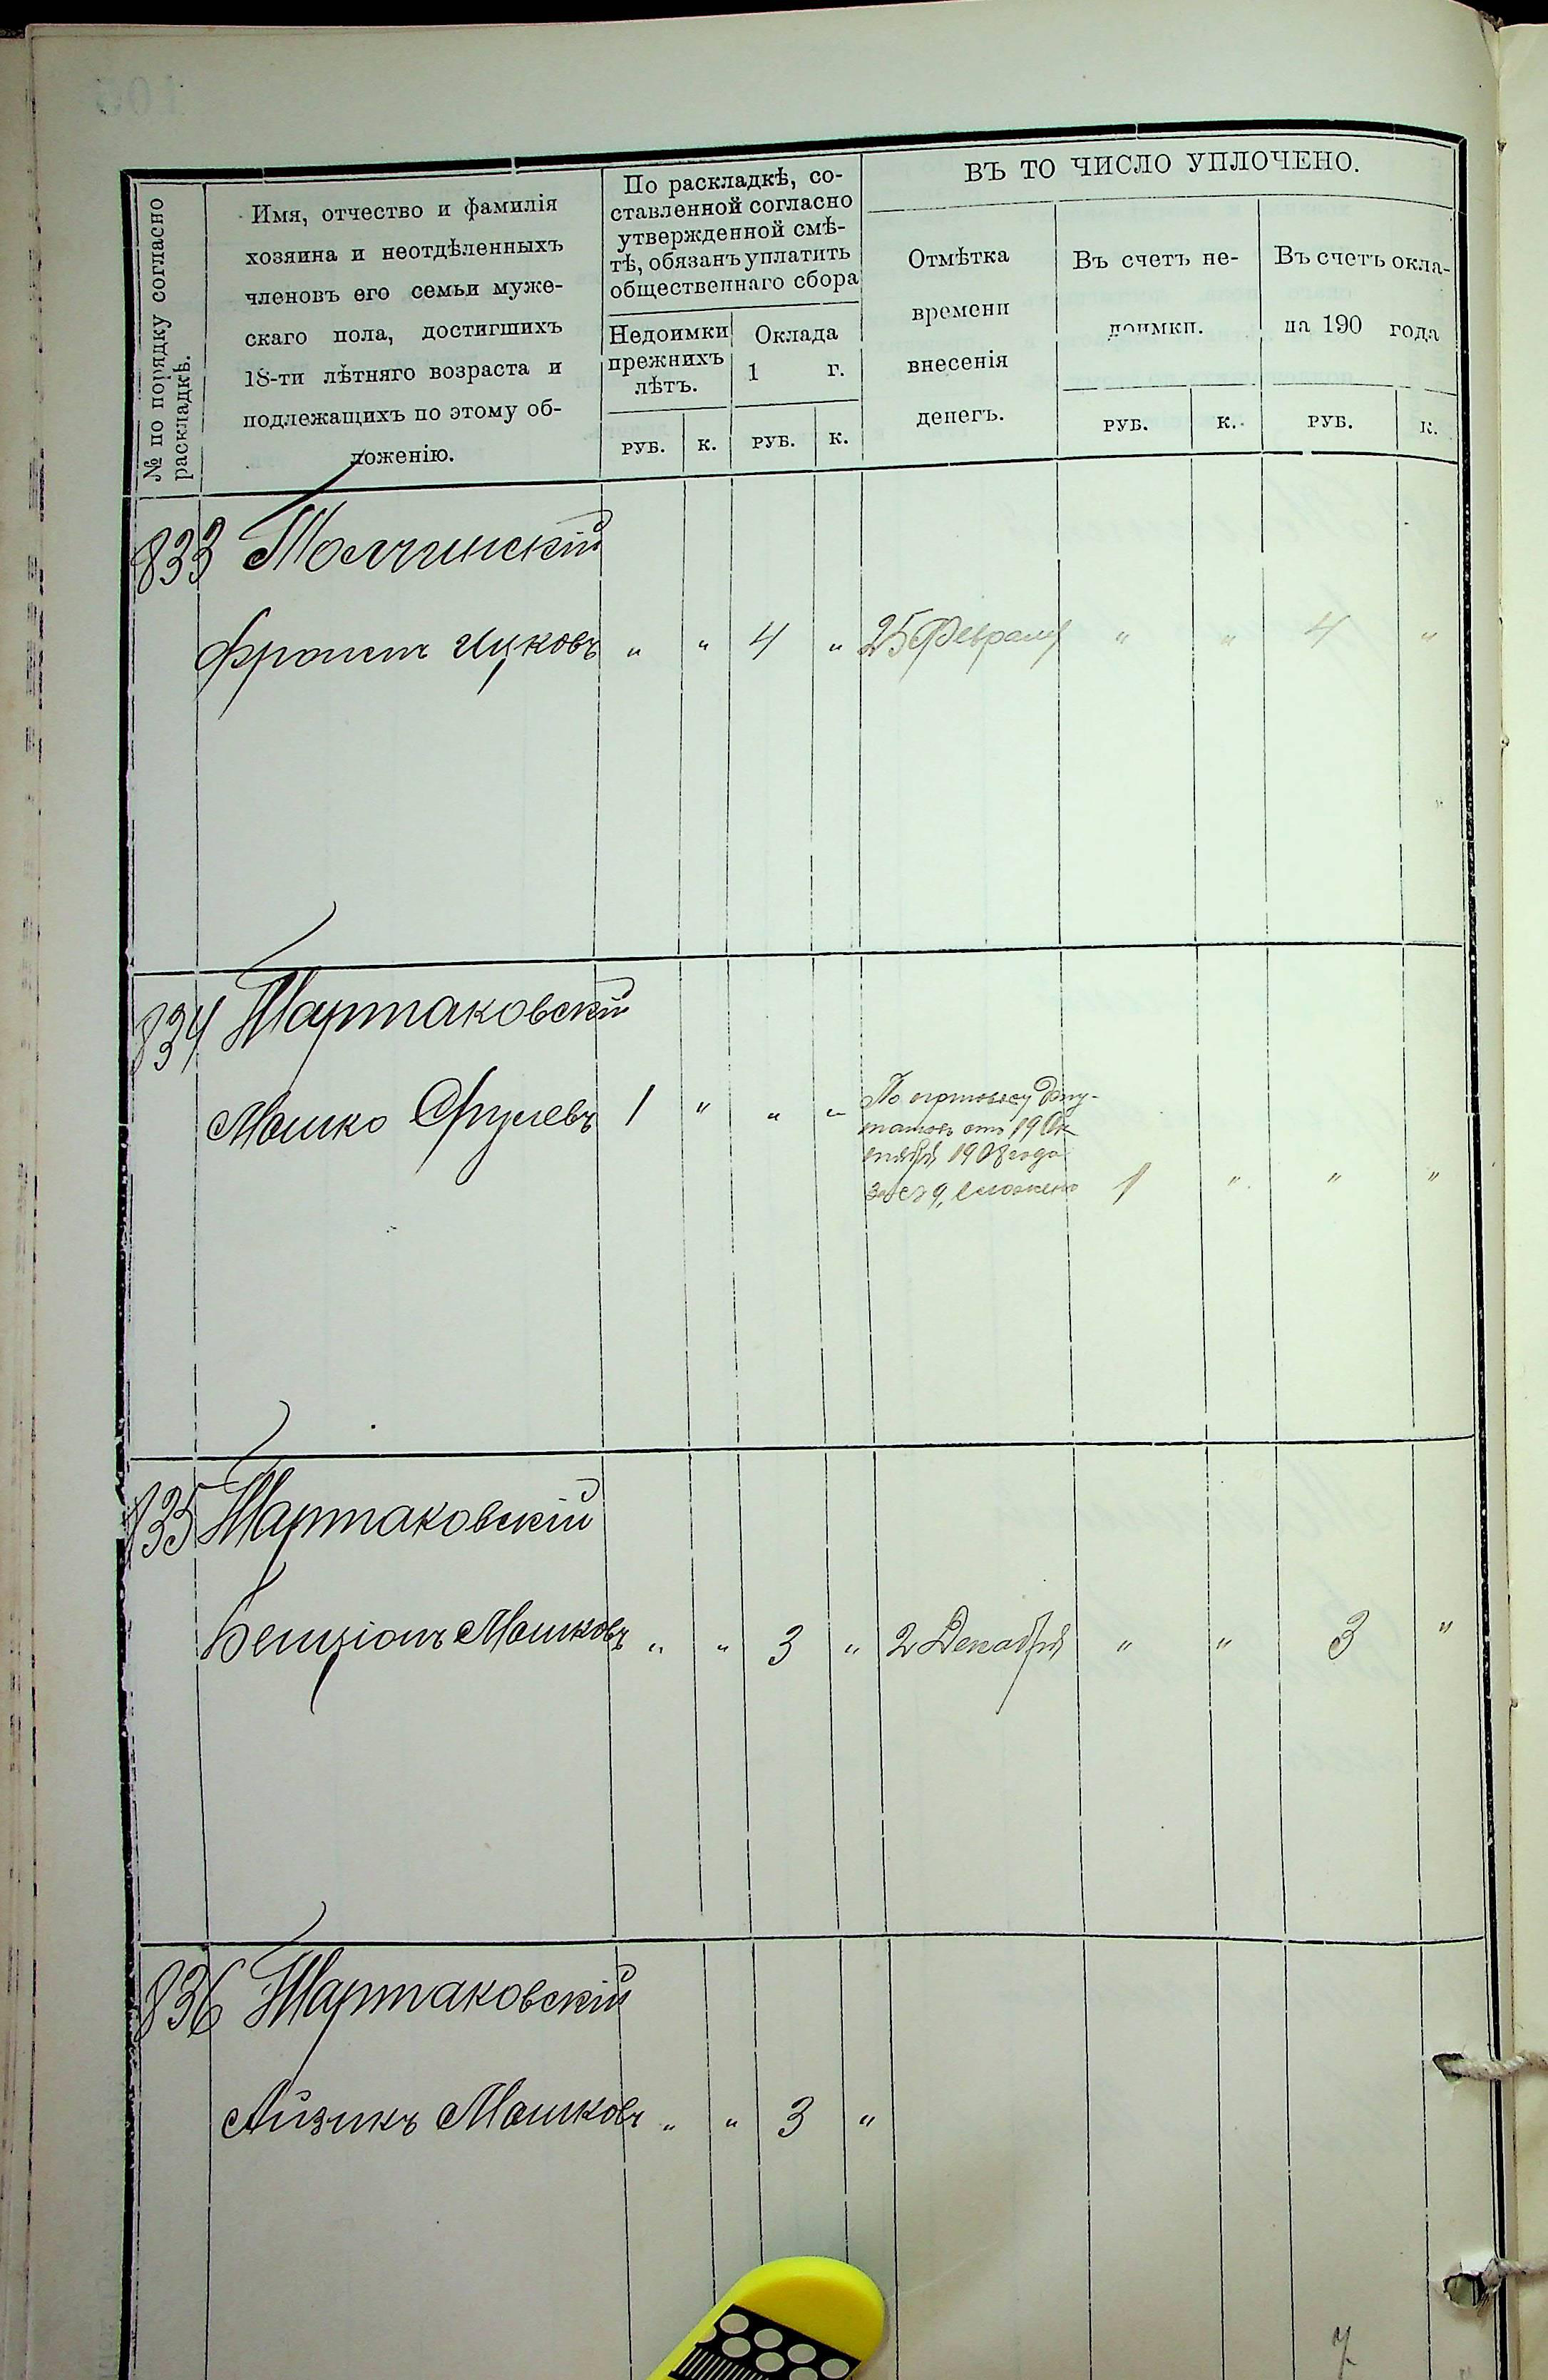 № по порядку согласно
раскладкѣ.
Имя, отчество и фамилія
хозяина и неотдѣленныхъ
членовъ его семьи муже-
скаго пола, достигшихъ
18-ти лѣтняго возраста и
подлежащихъ по этому об-
ложенію.
По раскладкѣ, со-
ставленной согласно
утвержденной смѣ-
тѣ, обязанъ уплатить
общественнаго сбора
Недоимки
прежнихъ
лѣтъ.
Оклада
1 г.
РУБ. К. РУБ. К.
ВЪ ТО ЧИСЛО УПЛОЧЕНО.
Отмѣтка
времени
внесенія
денегъ.
Въ счетъ не-
доимки.
Въ счетъ окла-
на 190 года
РУБ. К. РУБ. К.
833 Толчинскій
Фроимъ Ицковъ " " 4 " 25 Февраля " " 4 "
834 Тартаковскій
Мошко Срулевъ 1 " " "
По Депу-
татовъ отъ 19 Ок
тября 1908 года
за № 9, сложено 1 " " "
835 Тартаковскій
Бенціонъ Мошковъ " " 3 " 2 Декабря " " 3 "
836 Тартаковскій
Айзикъ Мошковъ " " 3 "
7